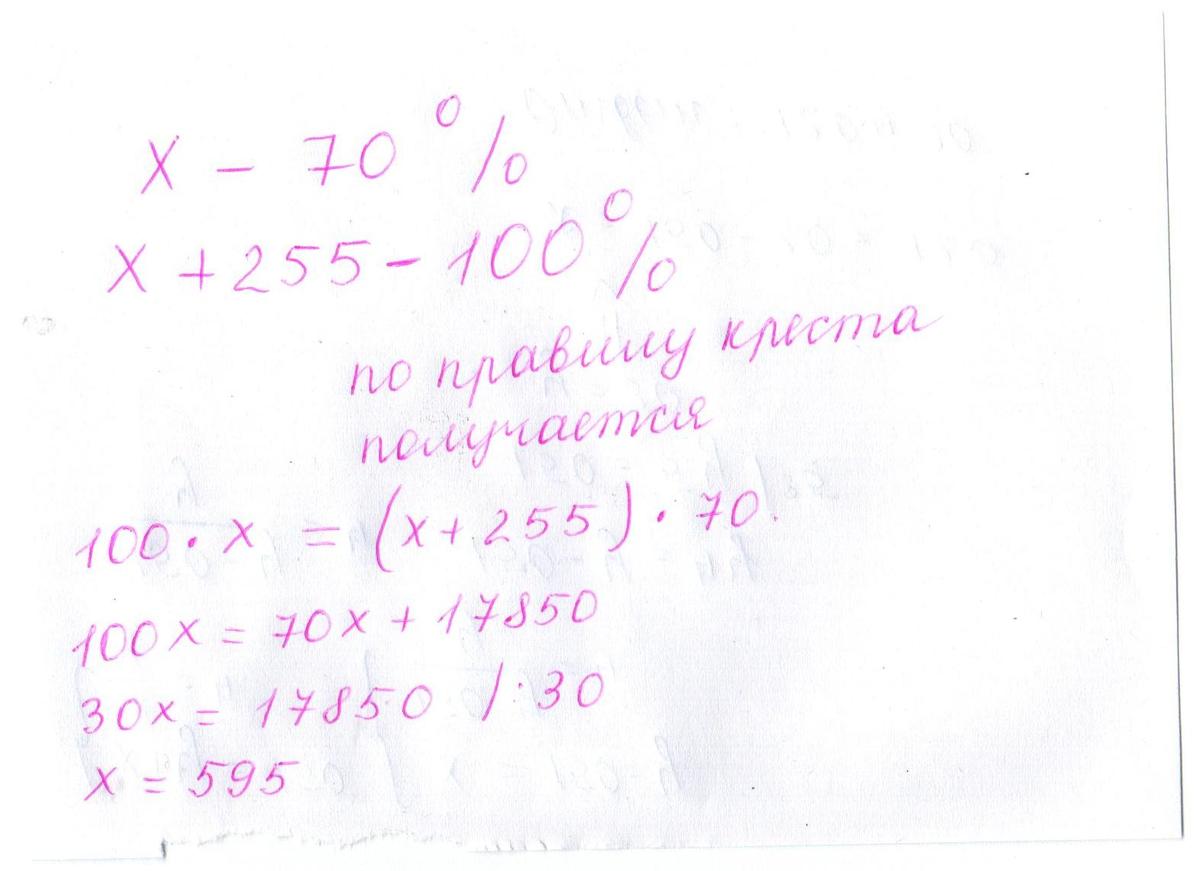 x - 70 %
x + 255 - 100 %
по правилу креста
получается
100 · x = (x + 255) · 70.
100x = 70x + 17850
30x = 17850 /:30
x = 595